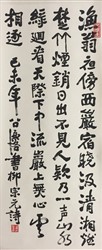 漁翁夜傍西巖宿曉汲清湘燃
楚竹煙銷日出不見人欸乃一聲山水
綠迴看天際下中流巖上無心雲
相逐 己未年 書柳宗元詩